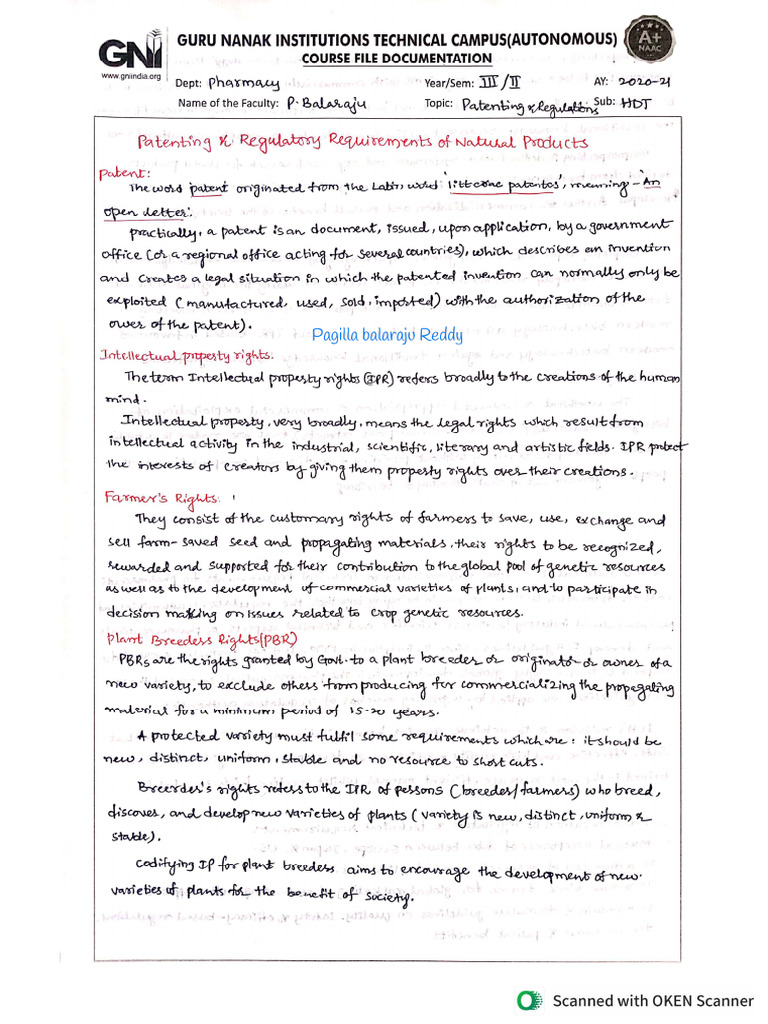 GNI
www.gniindia.org
GURU NANAK INSTITUTIONS TECHNICAL CAMPUS(AUTONOMOUS)
COURSE FILE DOCUMENTATION
A+
NAAC
Dept: Pharmacy Year/Sem: III/II AY: 2020-21
Name of the Faculty: P. Balaraju Topic: Patenting & Regulations Sub: HDT
Patenting & Regulatory Requirements of Natural Products
Patent:
The word patent originated from the Latin word 'litterae patentes', meaning - An
open letter'.
Practically, a patent is an document, issued, upon application, by a government
office (or a regional office acting for several countries), which describes an invention
and creates a legal situation in which the patented invention can normally only be
exploited (manufactured, used, sold, imported) with the authorization of the
ower of the patent).
Pagilla balaraju Reddy
Intellectual property rights:
The term Intellectual property rights (IPR) refers broadly to the creations of the human
mind.
Intellectual property, very broadly, means the legal rights which result from
intellectual activity in the industrial, scientific, literary and artistic fields. IPR protect
the interests of creators by giving them property rights over their creations.
Farmer's Rights:
They consist of the customary rights of farmers to save, use, exchange and
sell farm-saved seed and propagating materials, their rights to be recognized,
rewarded and supported for their contribution to the global pool of genetic resources
as well as to the development of commercial varieties of plants, and to participate in
decision making on issues related to crop genetic resources.
Plant Breeders Rights(PBR)
PBRs are the rights granted by Govt. to a plant breeder or originator or owner of a
new variety, to exclude others from producing for commercializing the propegating
material for a minimum period of 15-20 years.
A protected variety must fulfil some requirements which are: it should be
new, distinct, uniform, stable and no resource to short cuts.
Breerder's rights refers to the IPR of persons (breeder/farmers) who breed,
discover, and develop new varieties of plants (variety is new, distinct, uniform &
stable).
Codifying IP for plant breeders aims to encourage the development of new
varieties of plants for the benefit of society.
Scanned with OKEN Scanner